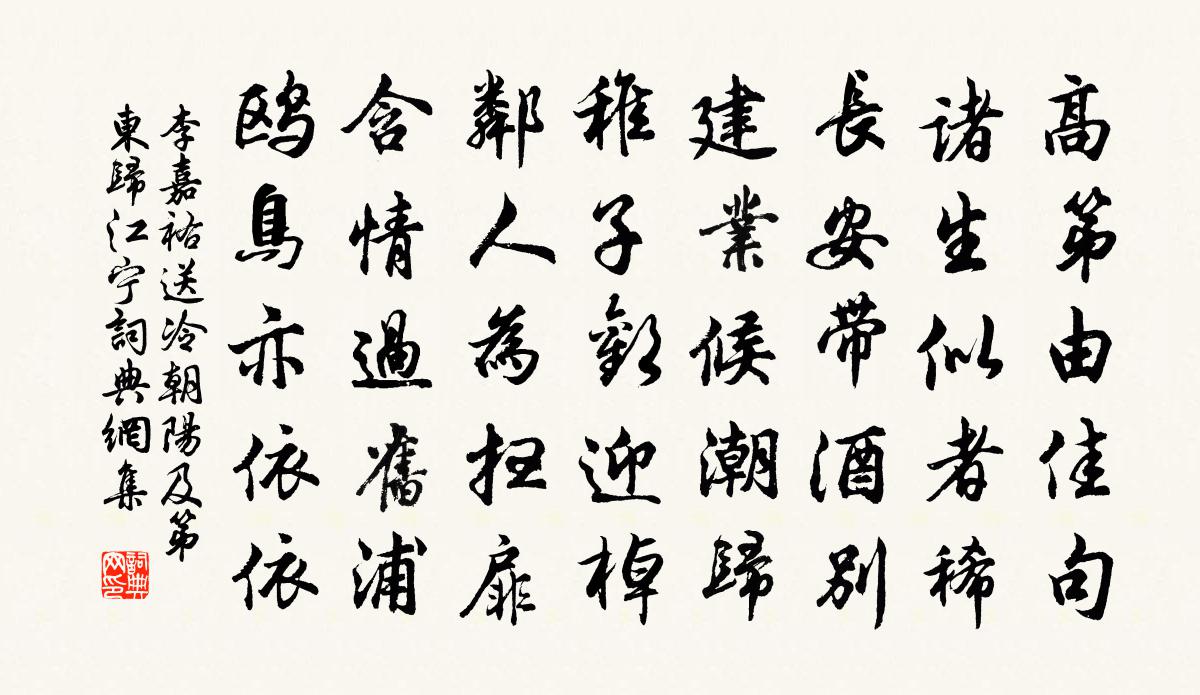 高第由佳句
諸生似者稀
長安带酒别
建業候潮歸
稚子歡迎棹
鄰人為扫扉
含情過舊浦
鸥鳥亦依依
李嘉祐送冷朝陽及第
東歸江宁詞典網集
詞典网印